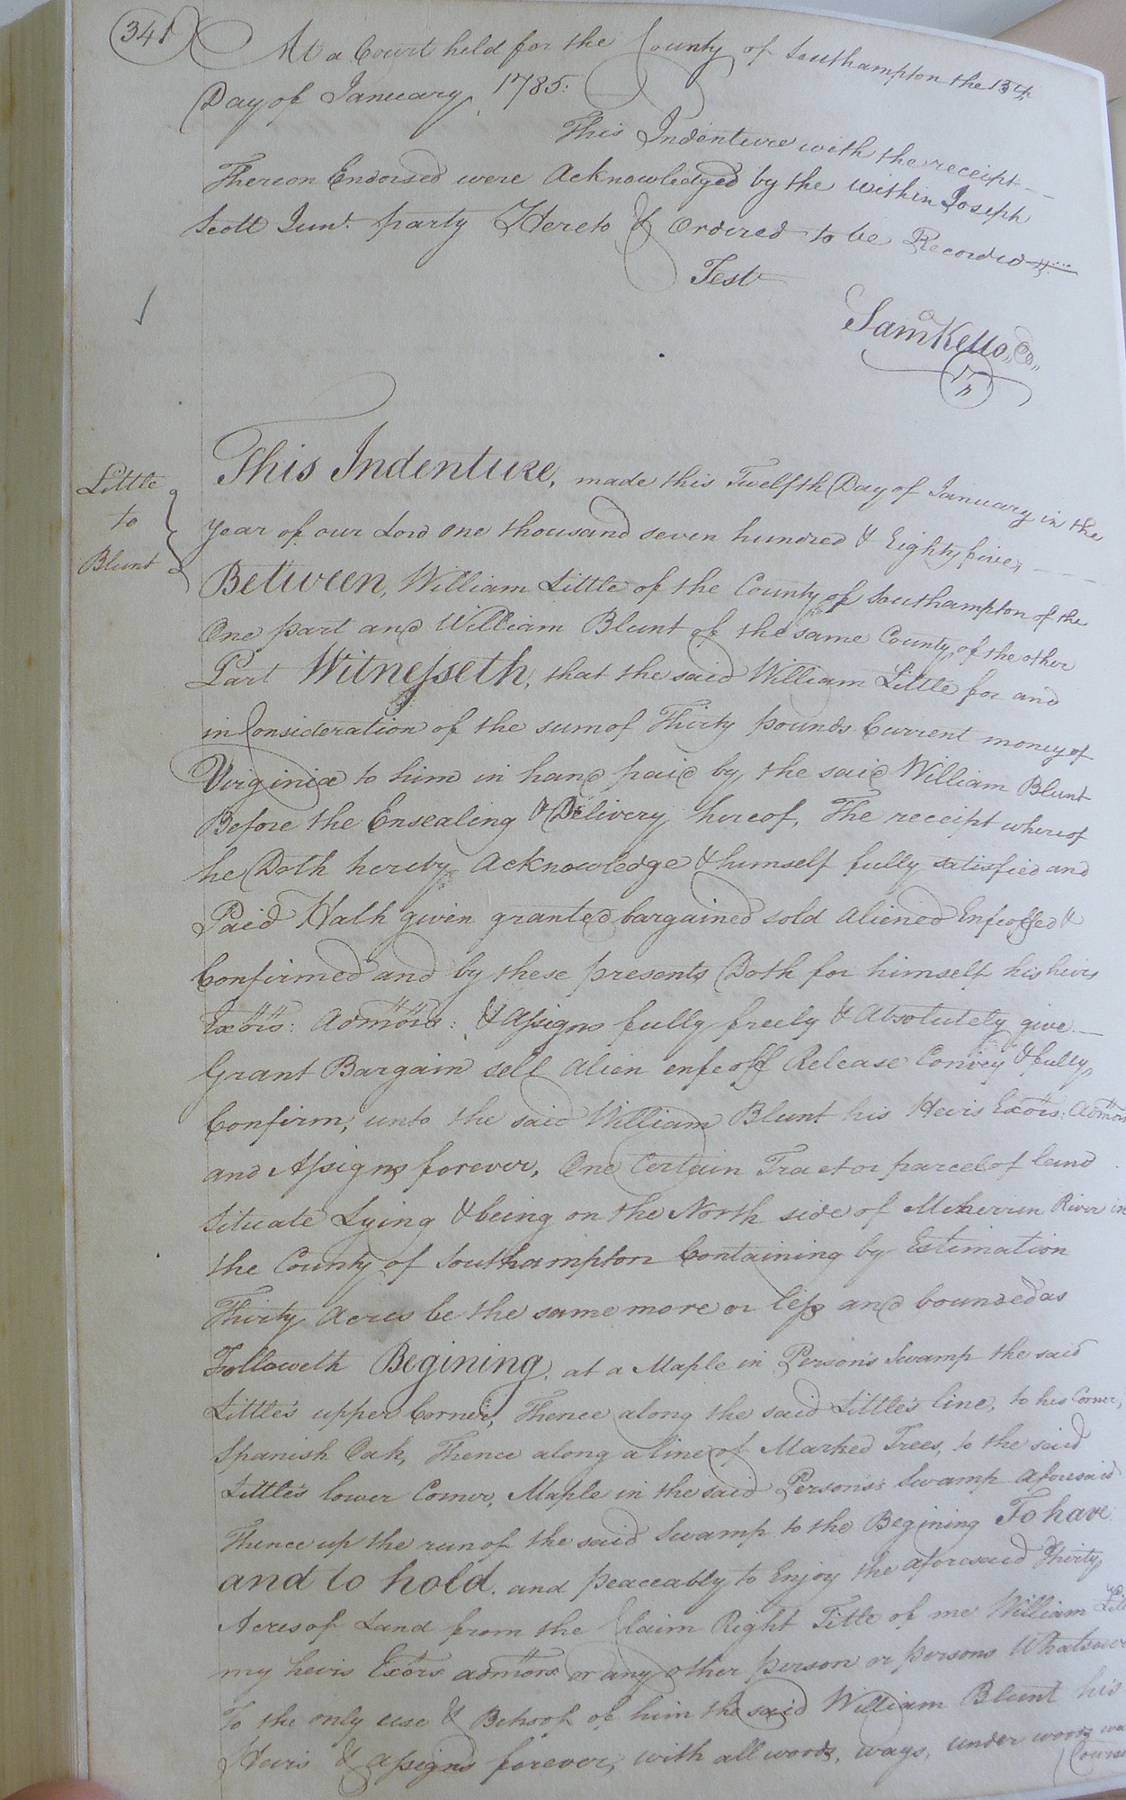 341
At a Court held for the County of Southampton the 13th
Day of January, 1785:
This Indenture with the receipt
Thereon Endorsed were Acknowledged by the within Joseph
Scott Junr. party Hereto & Ordered to be Recorded
Test
Sam Kello, Co,,
Little
to
Blunt
This Indenture, made this Twelfth Day of January in the
year of our Lord One thousand seven hundred & Eighty five,
Between, William Little of the County of Southampton of the
One part and William Blunt of the same County, of the other
Part Witnesseth, that the said William Little for and
in Consideration of the sum of Thirty pounds Current money of
Virginia to him in hand paid by the said William Blunt
Before the Ensealing & Delivery hereof, The receipt whereof
he Doth hereby Acknowledge & himself fully satisfied and
Paid Hath given granted bargained sold Aliened Enfeoffed &
Confirmed and by these presents Doth for himself his heirs
Exōrs: Admōrs: & Assigns fully freely & Absolutely give
Grant Bargain sell Alien enfeoff Release Convey & fully,
Confirm, unto the said William Blunt his Heirs Exōrs: Admōrs
and Assigns forever, One Certain Tract or parcel of land
Situate Lying & being on the North side of Meherrin River in
the County of Southampton Containing by Estimation
Thirty Acres be the same more or less and bounded as
Followeth Begining, at a Maple in Person's Swamp the said
Little's upper Corner, Thence along the said Little's line, to his Corner,
Spanish Oak, Thence along a line of Marked Trees, to the said
Little's lower Corner, Maple in the said Person's Swamp aforesaid
Thence up the run of the said Swamp to the Begining To have
and to hold, and peaceably to Enjoy the aforesaid Thirty
Acres of Land from the Claim Right Title of me William
my heirs Exōrs admōrs or any other person or persons
To the only use & Behoof of him the said William Blunt his
Heirs & Assigns forever, with all woods, ways, under woods